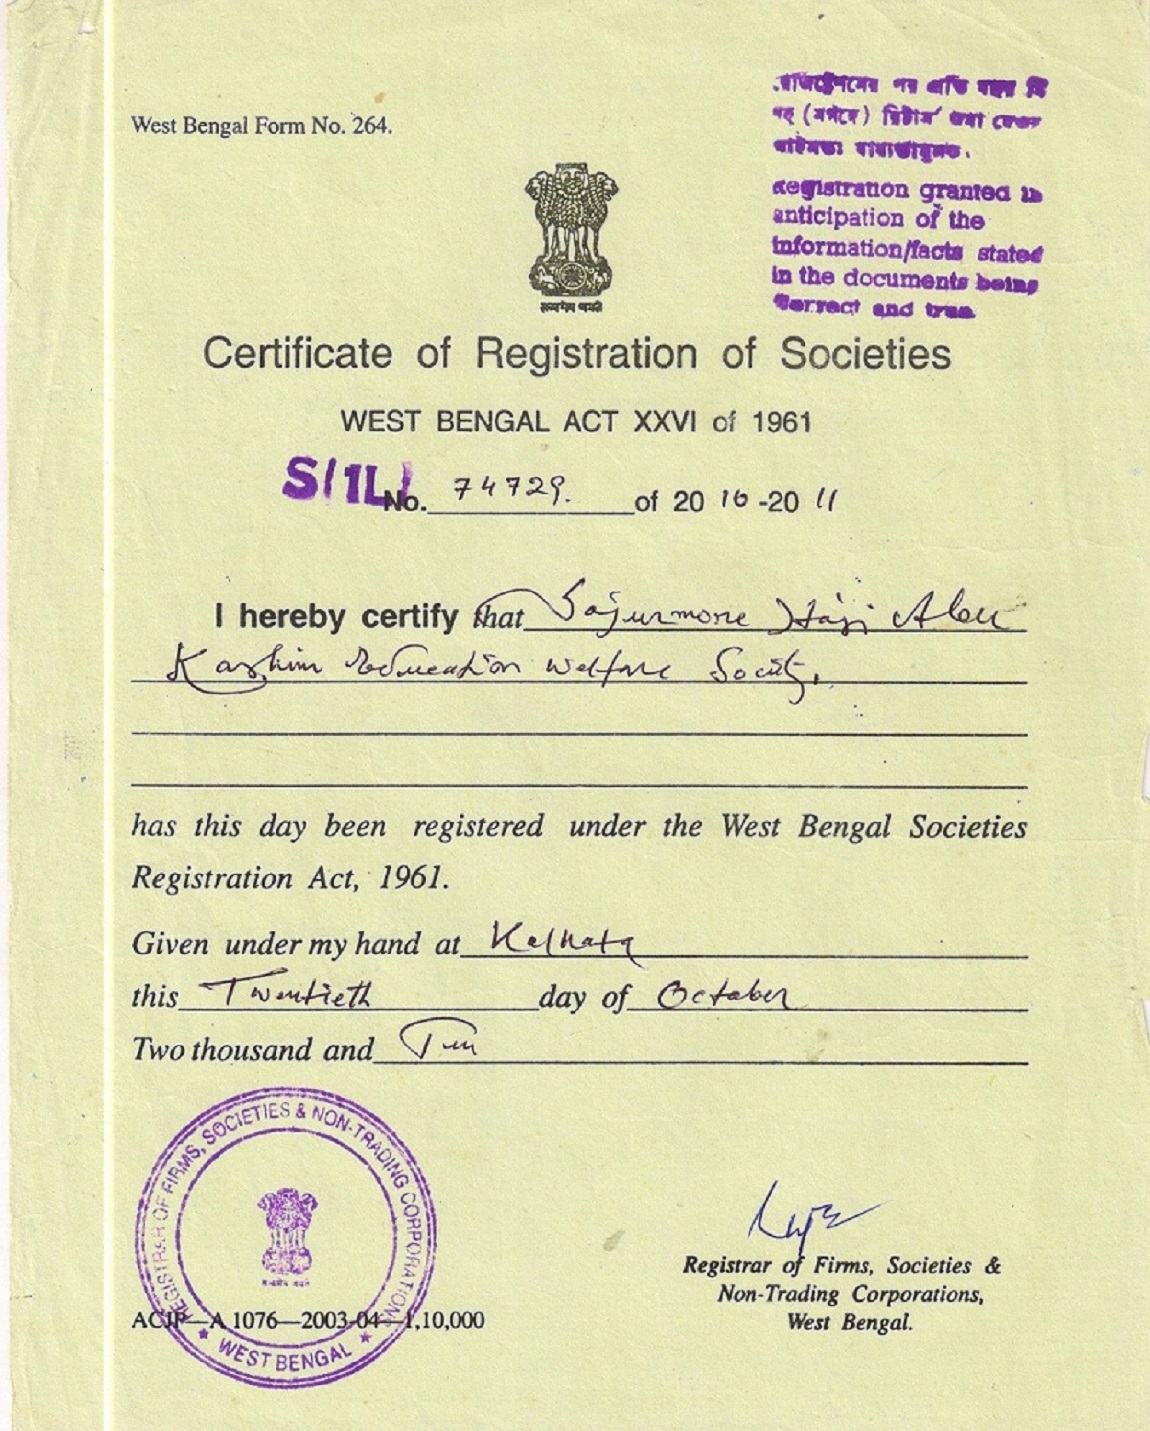 West Bengal Form No. 264.
পর প্রতি বছর
Registration granted in
anticipation of the
information/facts stated
in the documents being
correct and true.
सत्यमेव जयते
Certificate of Registration of Societies
WEST BENGAL ACT XXVI of 1961
S/1L/ No. 74729. of 2010-2011
I hereby certify that Sagurmore Hazi Abu
Kashim Education Welfare Society,
has this day been registered under the West Bengal Societies
Registration Act, 1961.
Given under my hand at Kolkata
this Twentieth day of October
Two thousand and Ten
REGISTRAR OF FIRMS, SOCIETIES & NON-TRADING CORPORATIONS
सत्यमेव जयते
★ WEST BENGAL ★
Registrar of Firms, Societies &
Non-Trading Corporations,
West Bengal.
ACJP—A 1076—2003-04—1,10,000